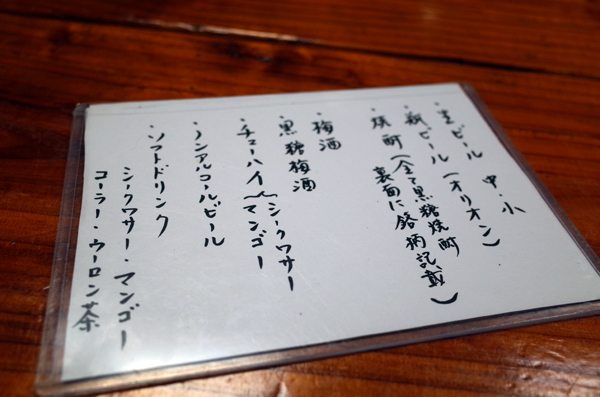 ・生ビール 中・小
・瓶ビール(オリオン)
・焼酎(全て黒糖焼酎
裏面に銘柄記載)
・梅酒
・黒糖梅酒
・チューハイ{シークワサー
マンゴー
・ノンアルコールビール
・ソフトドリンク
シークワサー・マンゴー
コーラー・ウーロン茶